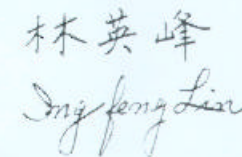 林英峰
Ing feng Lin